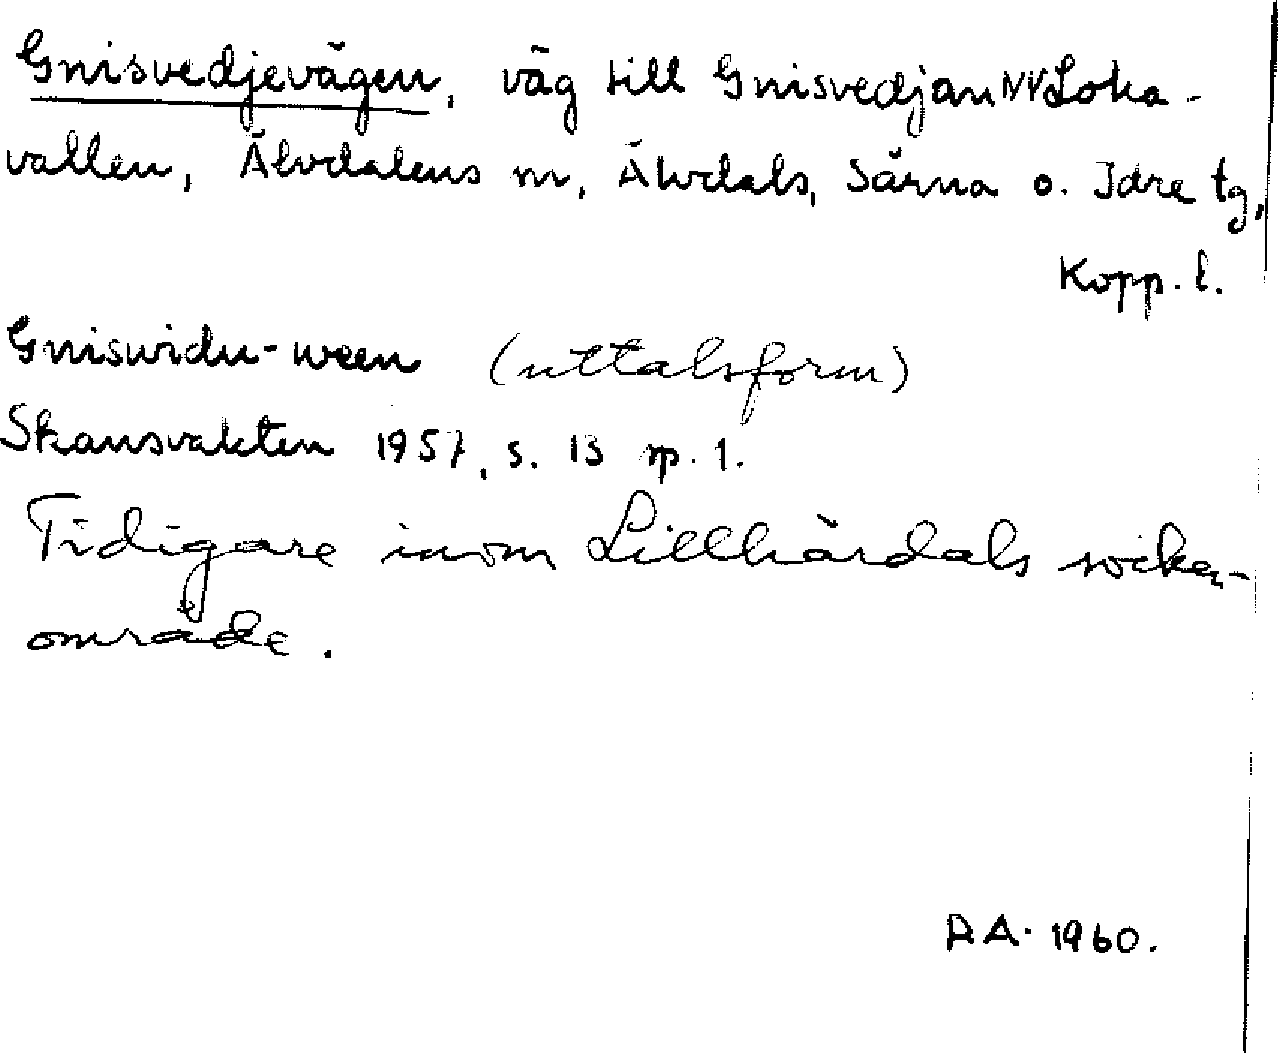 Gnisvedjevägen, väg till Gnisvedjan NV Loka-
vallen, Älvdalens sn, Älvdals, Särna o. Idre tg,
Kopp. l.
Gniswidu-ween (uttalsform)
Skansvakten 1957, s. 13 sp. 1.
Tidigare inom Lillhärdals socken-
område.
A A. 1960.